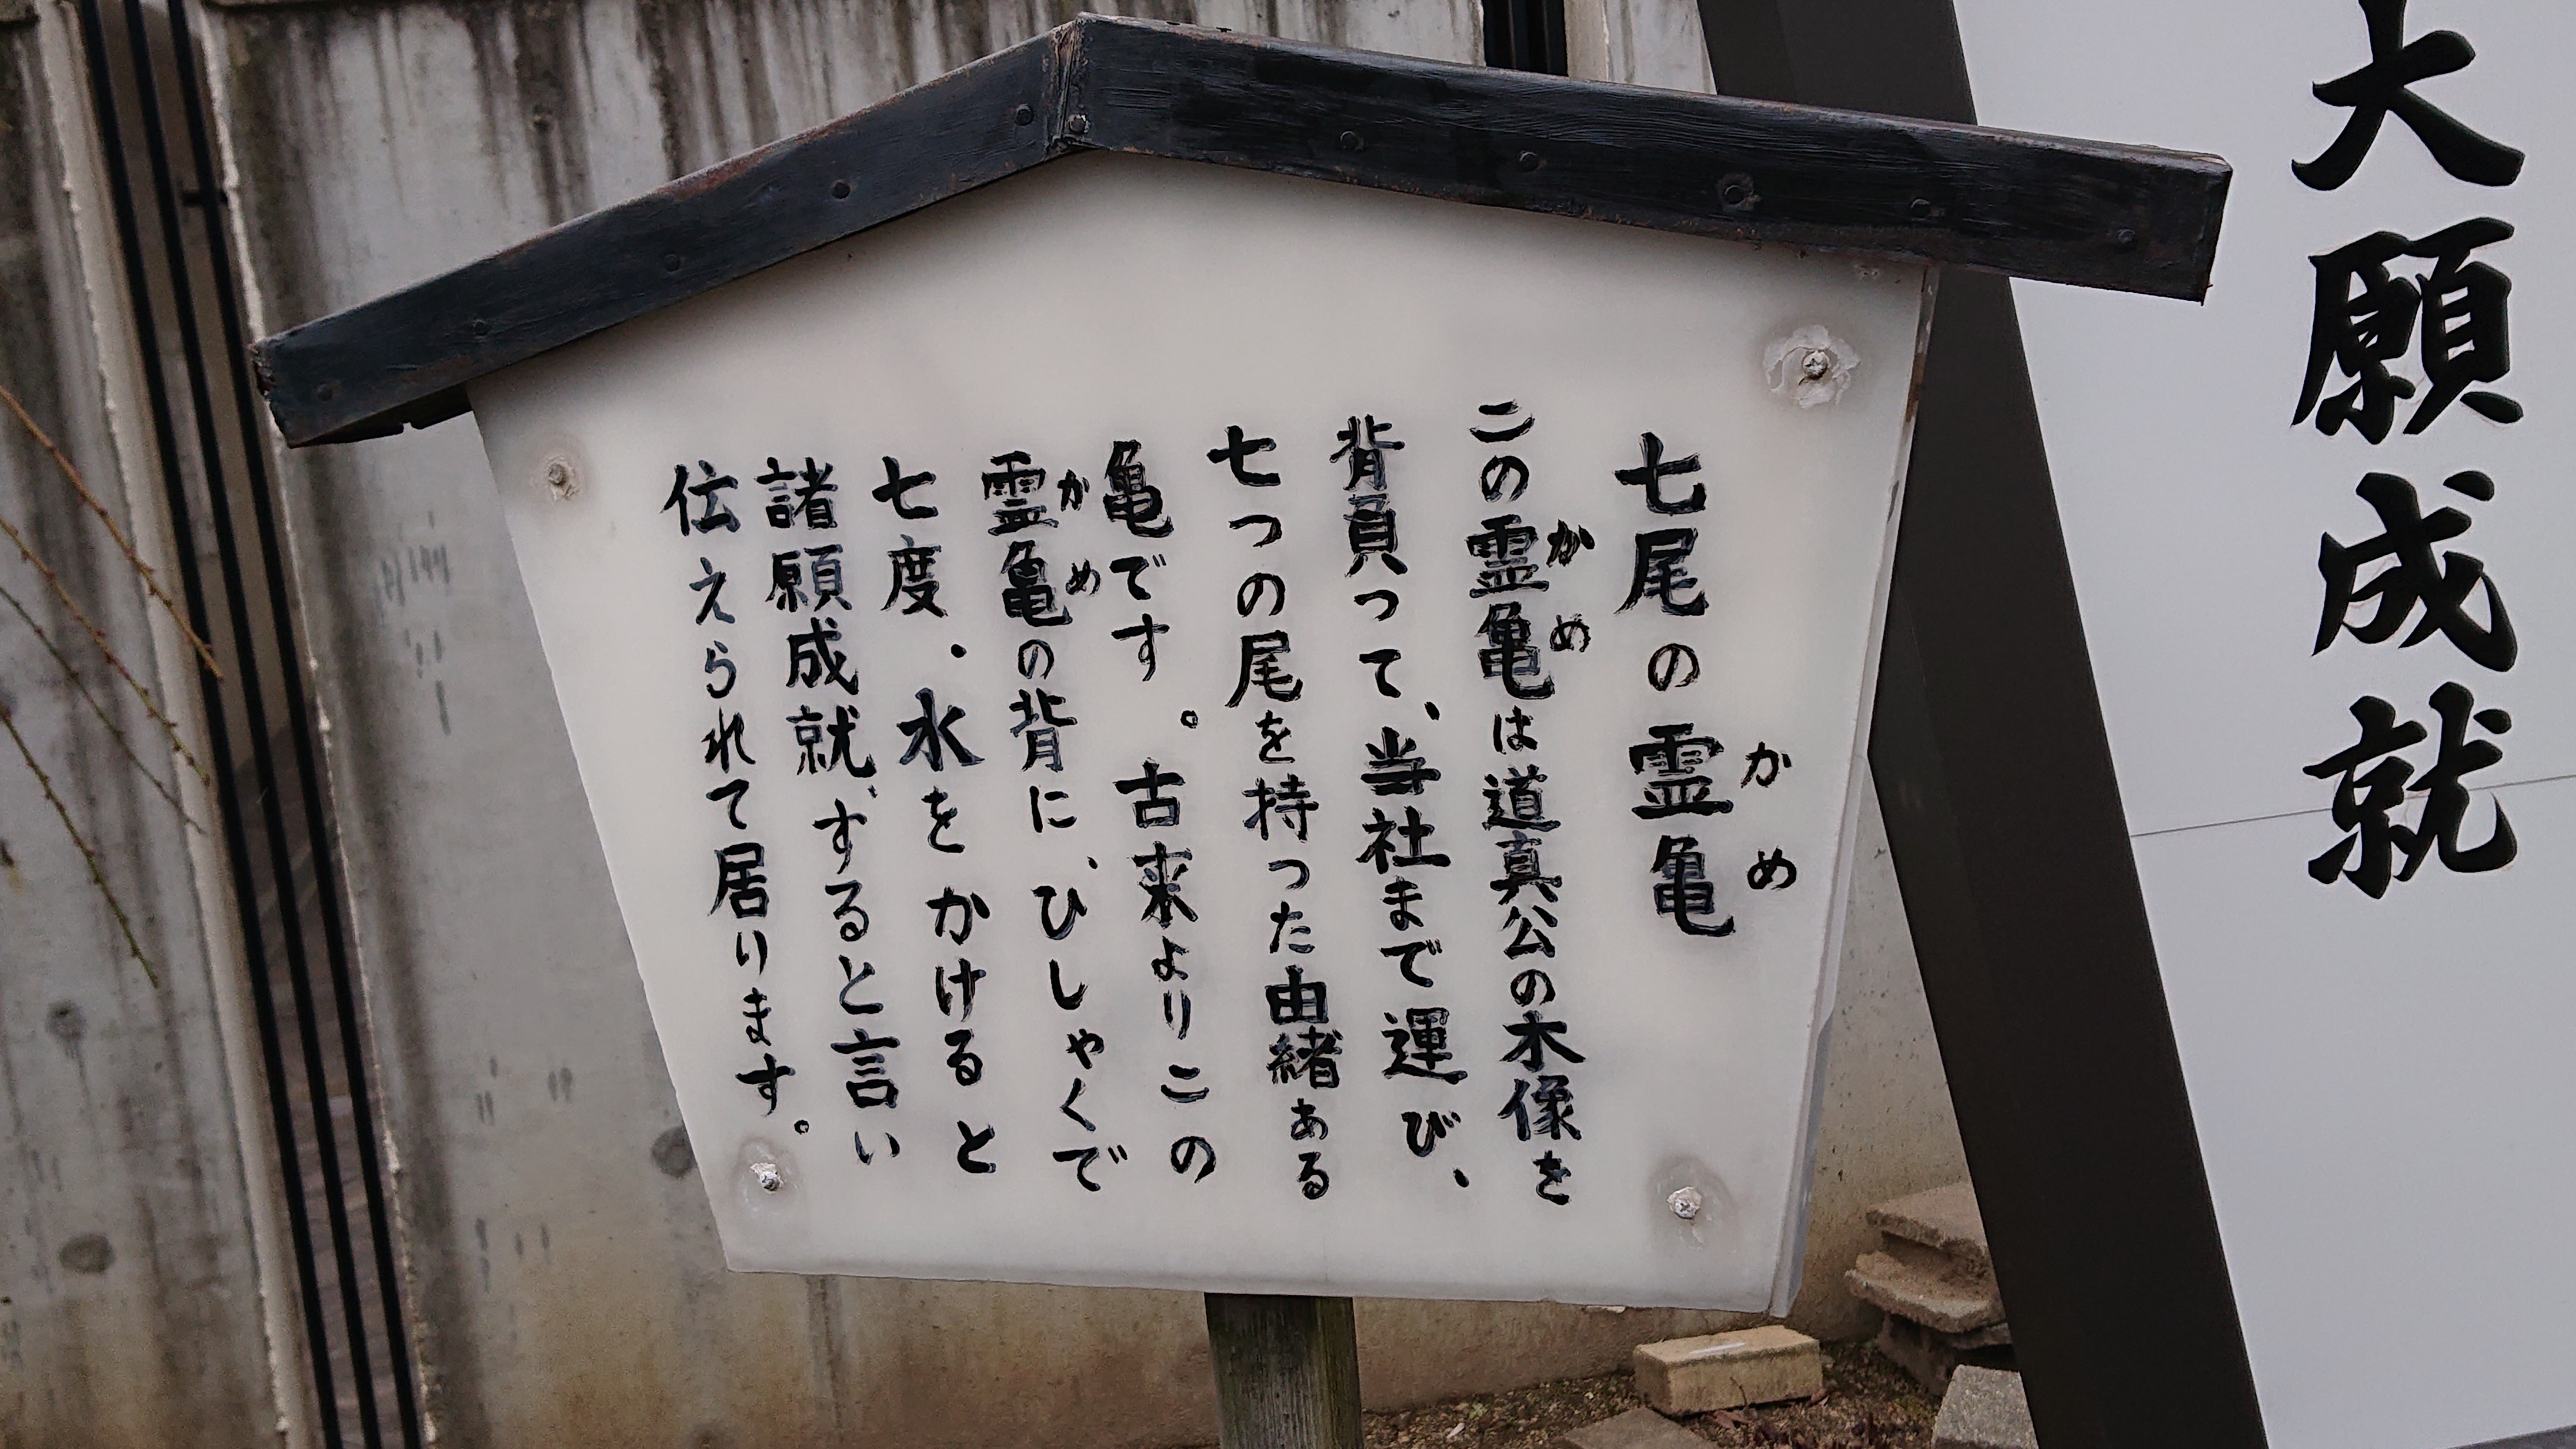 大願成就
七尾の霊亀
かめ
この霊亀は道真公の木像を
かめ
背負って、当社まで運び、
七つの尾を持った由緒ある
亀です。古来よりこの
霊亀の背に、ひしゃくで
かめ
七度、水をかけると
諸願成就、すると言い
伝えられて居ります。